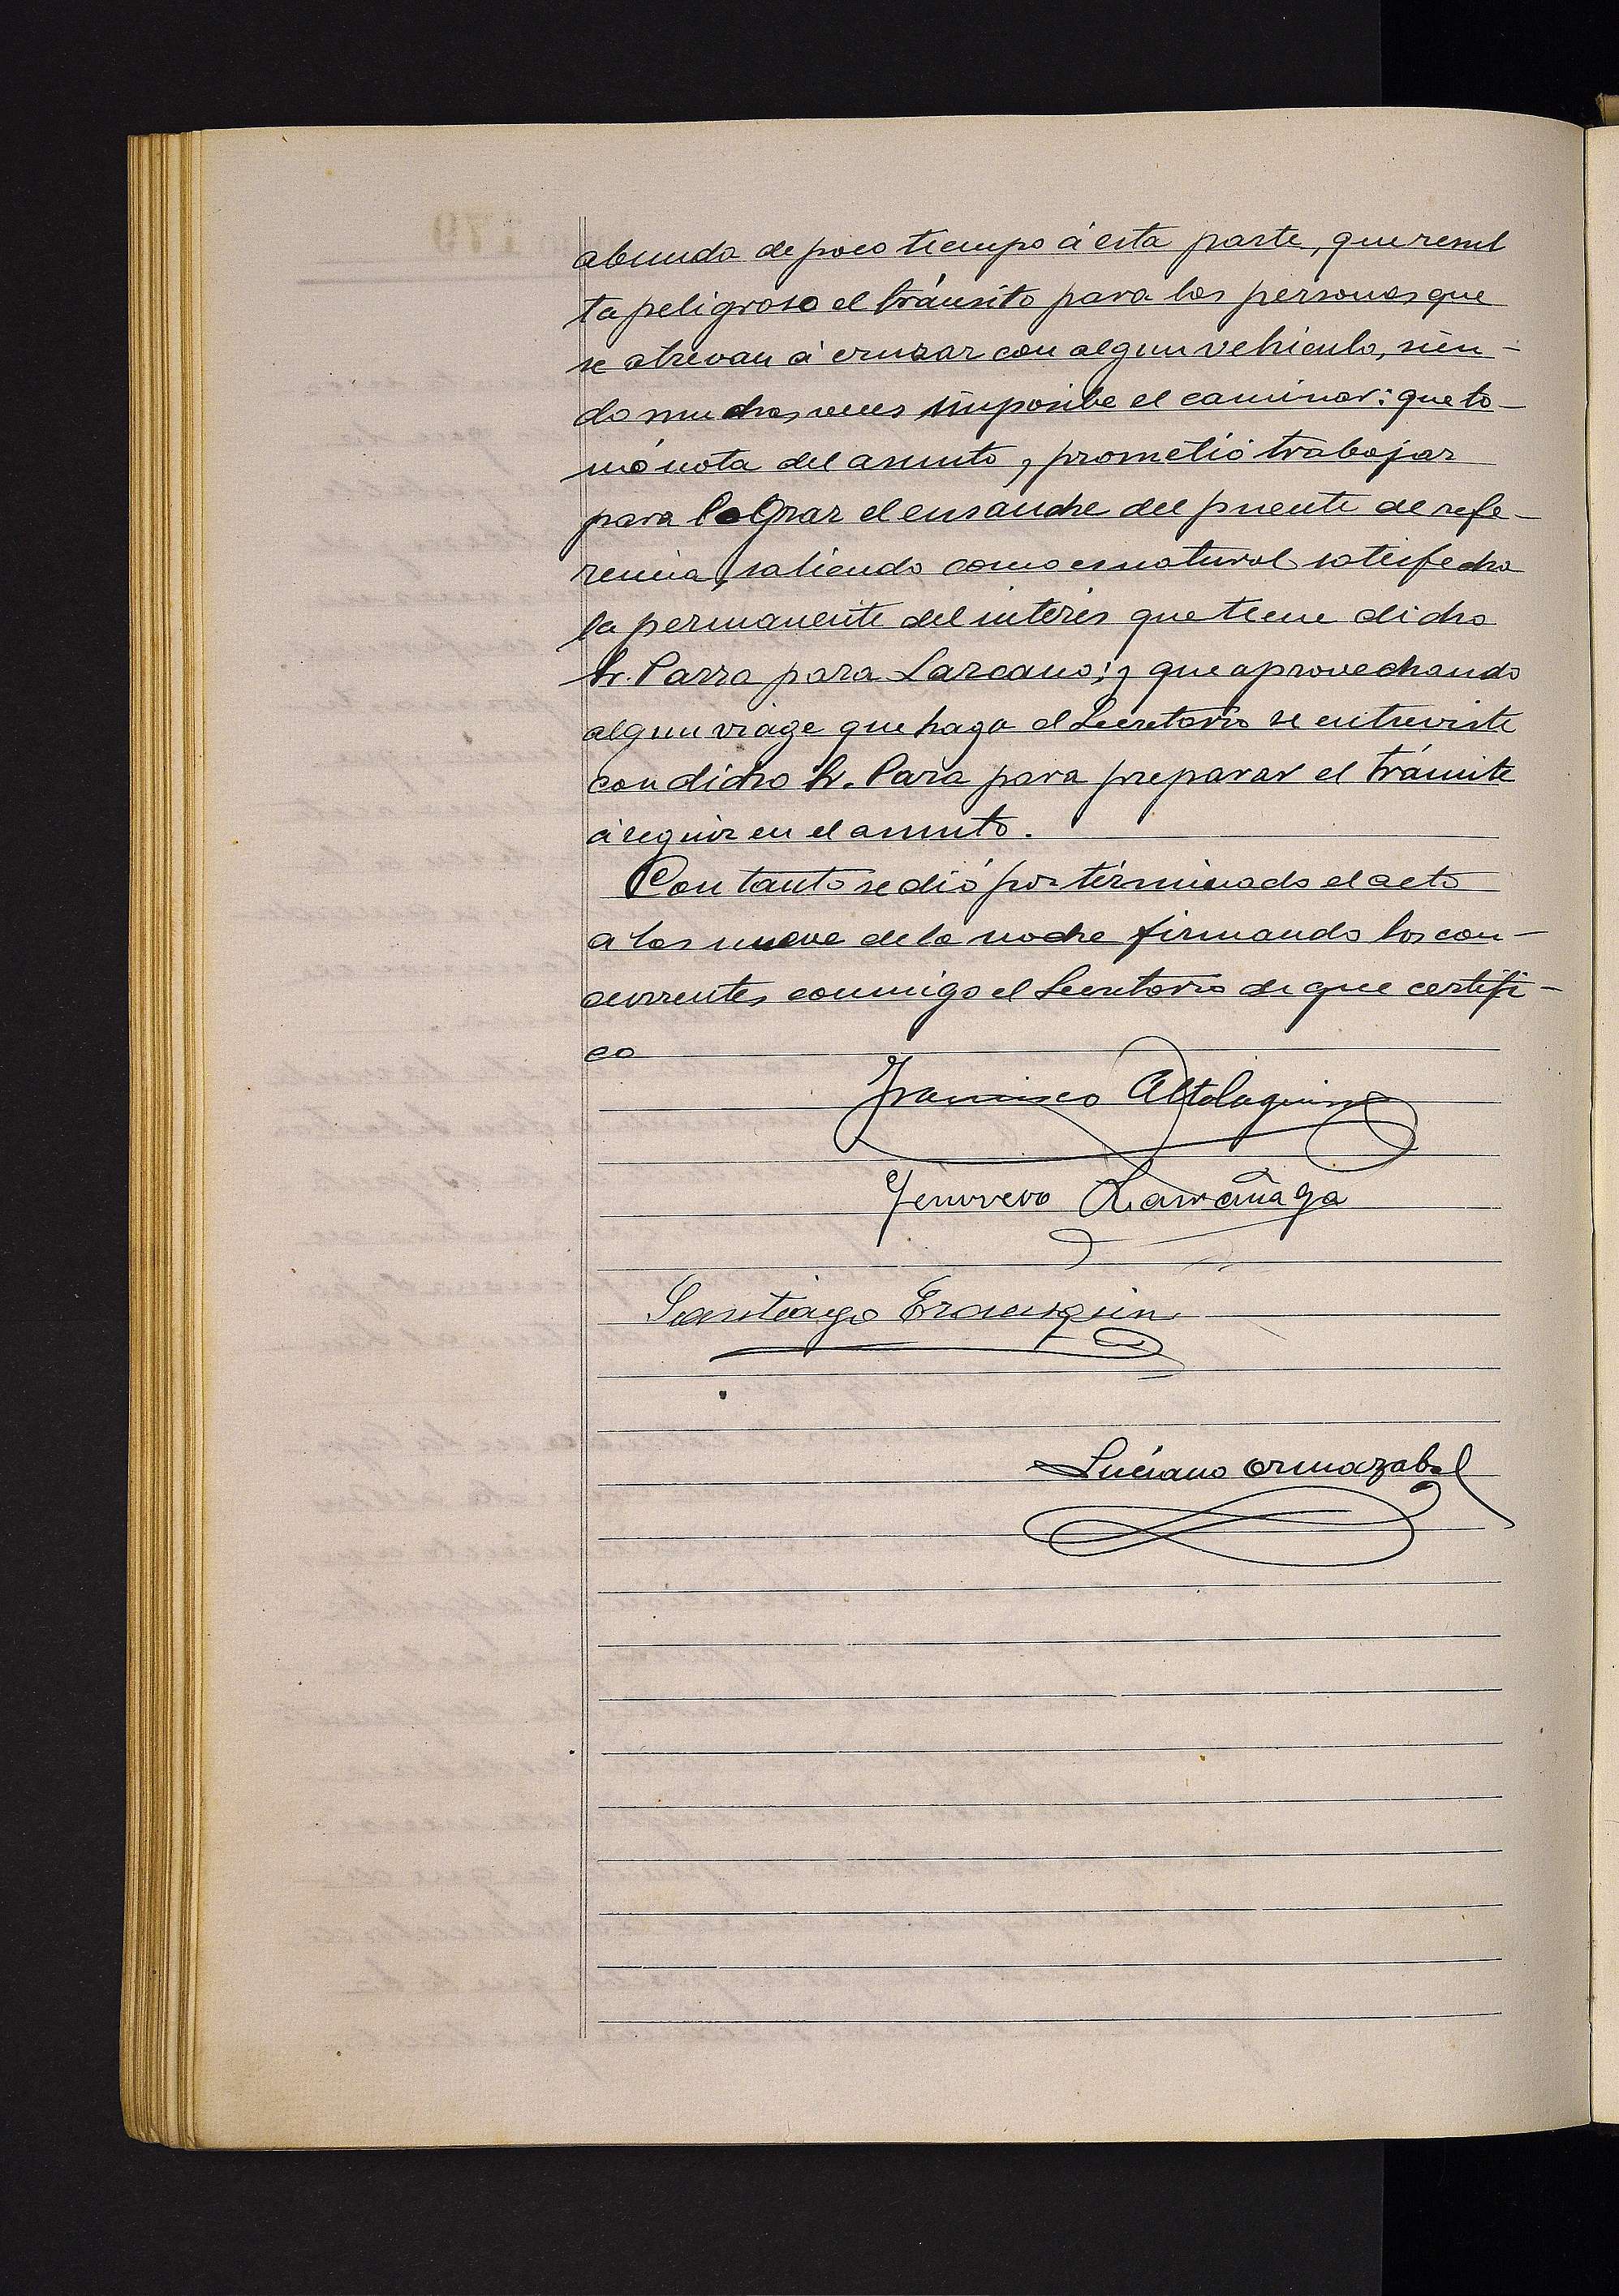 abunda de poco tiempo á esta parte, que resul
ta peligroso el tránsito para las personas que
se atrevan á cruzar con algun vehiculo, sien-
do muchas veces imposibe el caminar: que to-
mó nota del asunto, y prometió trabajar
para lograr el ensanche del puente de refe-
rencia, saliendo como es natural satisfecha
la permanente del interés que tiene dicho
Sr. Parra para Lazcano; y que aprovechando
algun viage que haga el Secretario se entreviste
con dicho Sr. Para para preparar el trámite
á seguir en el asunto.
Con tanto se dió por términado el acto
a las nueve de la noche firmando los con-
currentes conmigo el Secretario de que certifi-
co
Francisco Altolaguirre
Larrañaga
Santiago Erausquin
Luciano Ormazabal